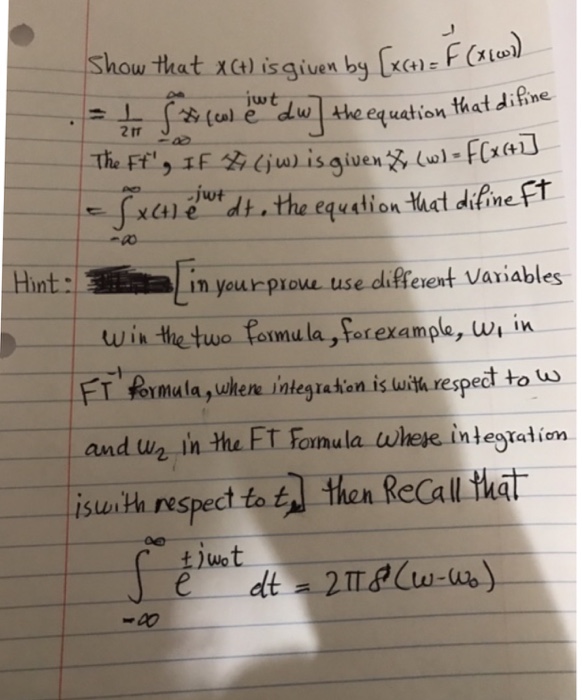 Show that x(t) is given by [x(t) = F⁻¹(x(ω))
= 1/2π ∫_{-∞}^{∞} X(ω) e^{jωt} dω] the equation that difine
The FT⁻¹, IF X(jω) is given X(ω) = F[x(t)]
= ∫_{-∞}^{∞} x(t) e^{-jωt} dt. the equation that difine FT
Hint: [in your prove use different variables
ω in the two formula, for example, ω₁ in
FT⁻¹ formula, where integration is with respect to ω
and ω₂ in the FT Formula whese integration
is with respect to t,] then ReCall that
∫_{-∞}^{∞} e^{±jω₀t} dt = 2πδ(ω-ω₀)